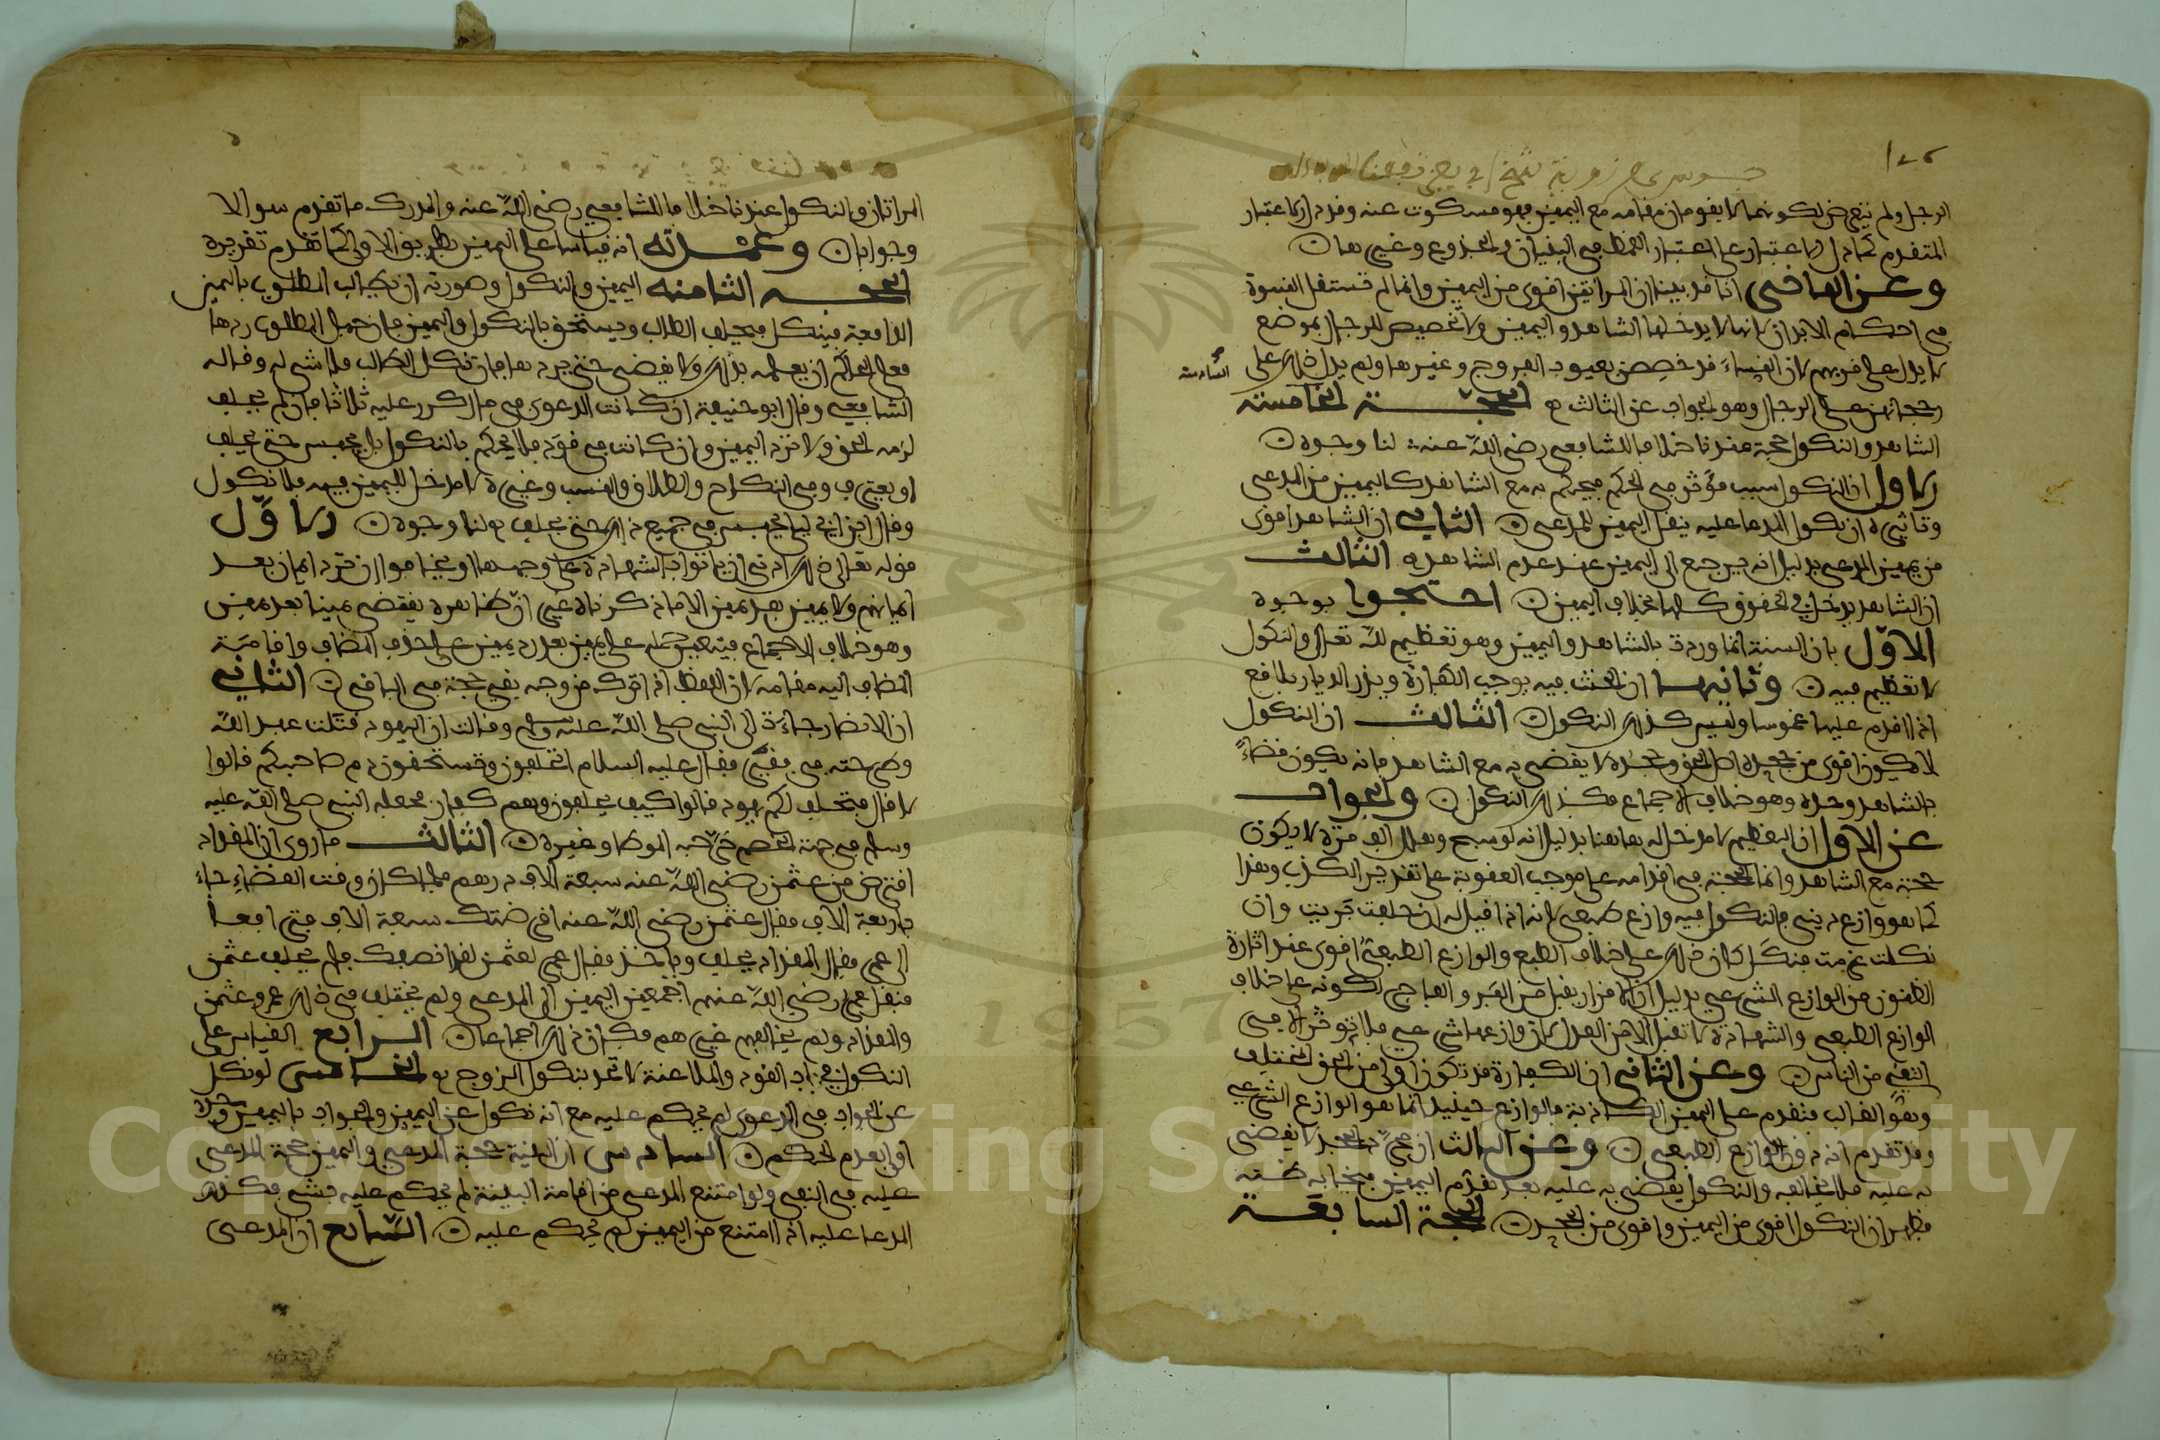 الرجل ولم يتعرض لكونهما لا يقومان مقامه مع اليمين فهو مسكوت عنه وقد دل الاعتبار
المتقدم كما دل الاعتبار على اعتبار القمط في البنيان والجذوع وغيرها ن
وعن الثاني انا قد بينا ان المراتين اقوى من اليمين وانما لم تستقل النسوة
في احكام الابدان لانها لا يدخلها الشاهد واليمين ولا تخصيص للرجال بموضع
لا يدل على قوتهم لان النساء قد خصصن بعيوب الفروج وغيرها ولم يدل ذلك على
رجحانهن على الرجال وهو الجواب عن الثالث الحجة الخامسة
السادسة
الشاهد والنكول حجة عندنا خلافا للشافعي رضي الله عنه لنا وجوه ن
الاول ان النكول سبب مؤثر في الحكم فيحكم به مع الشاهد كاليمين من المدعي
وتاثيره ان نكول المدعا عليه ينقل اليمين للمدعي ن الثاني ان الشاهد اقوى
من يمين المدعي بدليل انه يرجع الى اليمين عند عدم الشاهد الثالث
ان الشاهد يدخل في الحقوق كلها بخلاف اليمين ن احتجوا بوجوه
الاول بان السنة انما وردت بالشاهد واليمين وهو تعظيم لله تعالى والنكول
لا تعظيم فيه ن وثانيها ان الحنث فيه يوجب الكفارة ويذر الديار بلاقع
اذا اقدم عليها غموسا وليس كذلك النكول ن الثالث ان النكول
لا يكون اقوى من جحده اصل الحق وجحده لا يقضى به مع الشاهد فانه يكون قضاء
بالشاهد وحده وهو خلاف الاجماع فكذلك النكول ن والجواب
عن الاول ان التعظيم لا مدخل له هاهنا بدليل انه لو سبح وهلل الف مرة لا يكون
حجة مع الشاهد وانما الحجة في اقدامه على موجب العقوبة على تقدير الكذب وهذا
كما هو وازع ديني فالنكول فيه وازع طبعي لانه اذا قيل له ان حلفت بريت وان
نكلت غرمت فنكل كان ذلك على خلاف الطبع والوازع الطبعي اقوى عند اثارة
الظنون من الوازع الشرعي بدليل ان الاقرار يقبل من البر والفاجر لكونه على خلاف
الوازع الطبعي والشهادة لا تقبل الا من العدل لان وازعها شرعي فلا تؤثر الا في
التقي من الناس ن وعن الثاني ان الكفارة قد تكون اولى من الحق المختلف
وهو الغالب فتقدم على اليمين الكاذبة فالوازع حينيذ انما هو الوازع الشرعي
وقد تقدم انه دون الوازع الطبعي ن وعن الثالث ان مجرد الجحد لا يقضى
به عليه فلا يخالفه والنكول يقضى به عليه بعد تقدم اليمين
فظهر ان النكول اقوى من اليمين واقوى من الجحد ن الحجة السابعة
المراتان والنكول عندنا خلافا للشافعي رضي الله عنه والمدرك ما تقدم سوالا
وجوابا ن وعمدته انه قياسا على اليمين بطريق الاولى كما تقدم تقريره
الحجة الثامنه اليمين والنكول وصورته ان يطالب المطلوب باليمين
الدافعة فينكل فيحلف الطالب ويستحق بالنكول واليمين فان جهل المطلوب ردها
فعلى الحاكم ان يعلمه بذلك ولا يقضي حتى يردها فان نكل الطالب فلا شي له وقاله
الشافعي وقال ابو حنيفة ان كانت الدعوى في مال كرر عليه ثلاثا فان لم يحلف
لزمه الحق ولا ترد اليمين وان كانت في قود فلا يحكم بالنكول بل يحبس حتى يحلف
او يعترف وفي النكاح والطلاق والنسب وغيره لا مدخل لليمين فيه فلا نكول
وقال ابن ابي ليلى يحبس في جميع ذلك حتى يحلف لنا وجوه ن الاول
قوله تعالى ذلك ادنى ان ياتوا بالشهادة على وجهها او يخافوا ان ترد ايمان بعد
ايمانهم ولا يمين بعد يمين الا ما ذكرناه غير ان ظاهره يقتضي يمينا بعد يمين
وهو خلاف الاجماع فيتعين حمله على يمين بعد رد يمين على حذف المضاف واقامة
المضاف اليه مقامه لان اللفظ اذا ترك من وجه بقي حجة في الباقي ن الثاني
ان الانصار جاءت الى النبي صلى الله عليه وسلم وقالت ان اليهود قتلت عبد الله
وطرحته في فقير فقال عليه السلام اتحلفون وتستحقون دم صاحبكم قالوا
لا قال فتحلف لكم يهود قالوا كيف يحلفون وهم كفار فجعله النبي صلى الله عليه
وسلم في جهة الخصم خرجه الموطا وغيره ن الثالث ما روي ان المقداد
اقترض من عثمن رضي الله عنه سبعة الاف درهم فلما كان وقت القضاء جاء
باربعة الاف فقال عثمن رضي الله عنه اقرضتك سبعة الاف فترافعا
الى عمر فقال المقداد يحلف وياخذ فقال عمر لعثمن لقد انصفك فلم يحلف عثمن
فنقل عمر رضي الله عنهم اجمعين اليمين الى المدعي ولم يختلف في ذلك عمر وعثمن
والمقداد ولم يخالفهم غيرهم فكان ذلك اجماعا ن الرابع القياس على
النكول في باب القود والملاعنة لا تحد بنكول الزوج الخامس لو نكل
عن الجواب في الدعوى لم يحكم عليه مع انه نكول عن اليمين والجواب باليمين وحده
اولى بعدم الحكم ن السادس ان البينة حجة المدعي واليمين حجة المدعى
عليه في النفي ولو امتنع المدعي من اقامة البينة لم يحكم عليه بشي فكذلك
المدعا عليه اذا امتنع من اليمين لم يحكم عليه ن السابع ان المدعى
Copyright © King Saud University
1957